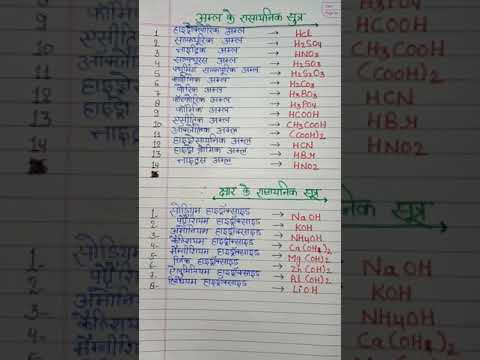 अम्ल के रासायनिक सूत्र
1 हाइड्रोक्लोरिक अम्ल → HCl
2 सल्फ्यूरिक अम्ल → H2SO4
3 नाइट्रिक अम्ल → HNO3
4 सल्फ्यूरस अम्ल → H2SO3
5 सल्फ्यूरिक अम्ल → H2S2O3
6 कार्बोनिक अम्ल → H2CO3
7 बोरिक अम्ल → H3BO3
8 फॉस्फोरिक अम्ल → H3PO4
9 फॉर्मिक अम्ल → HCOOH
10 एसीटिक अम्ल → CH3COOH
11 ऑक्जेलिक अम्ल → (COOH)2
12 हाइड्रोसायनिक अम्ल → HCN
13 हाइड्रो ब्रोमिक अम्ल → HBr
14 नाइट्रस अम्ल → HNO2
क्षार के रासायनिक सूत्र
1- सोडियम हाइड्रॉक्साइड → NaOH
2- पोटैशियम हाइड्रॉक्साइड → KOH
3- अमोनियम हाइड्रॉक्साइड → NH4OH
4- कैल्शियम हाइड्रॉक्साइड → Ca(OH)2
5- मैग्नीशियम हाइड्रॉक्साइड → Mg(OH)2
6- जिंक हाइड्रॉक्साइड → Zn(OH)2
7- एल्युमिनियम हाइड्रॉक्साइड → Al(OH)3
8- लिथियम हाइड्रॉक्साइड → LiOH